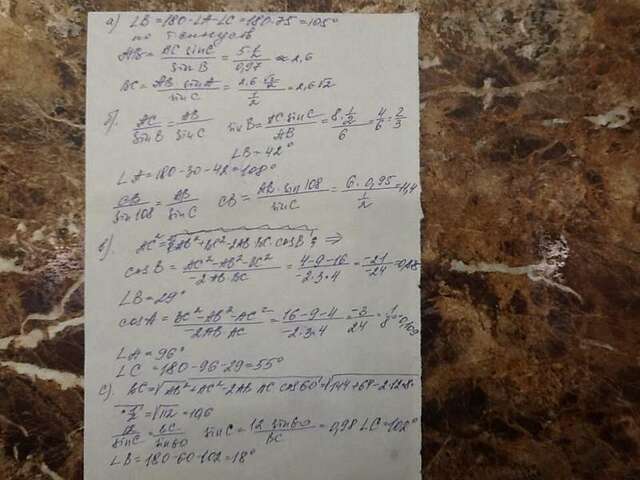 а) ∠B = 180 - ∠A - ∠C = 180 - 75 = 105°
по т. синусов
AB = AC sin C / sin B = 5·1/2 / 0,97 ≈ 2,6
BC = AB sin A / sin C = 2,6 · √2/2 / 1/2 = 2,6√2
б) AC / sin B = AB / sin C sin B = AC sin C / AB = 8·1/2 / 6 = 4/6 = 2/3
∠B = 42°
∠A = 180 - 30 - 42 = 108°
CB / sin 108 = AB / sin C CB = AB · sin 108 / sin C = 6 · 0,95 / 1/2 = 11,4
в). AC² = AB² + BC² - 2AB BC · cos B ⇒
cos B = AC² - AB² - BC² / -2AB · BC = 4 - 9 - 16 / -2·3·4 = -21 / -24 =
∠B = 29°
cos A = BC² - AB² - AC² / -2AB AC = 16 - 9 - 4 / -2·3·4 = -3 / 24 = 1/8
∠A = 96°
∠C = 180 - 96 - 29 = 55°
с). BC = √AB² + AC² - 2AB AC cos 60 = √144 + 64 - 2·12·8
· 1/2 = √112 = 10,6
12 / sin C = BC / sin 60 sin C = 12 sin 60 / BC = 0,98 ∠C = 102°
∠B = 180 - 60 - 102 = 18°